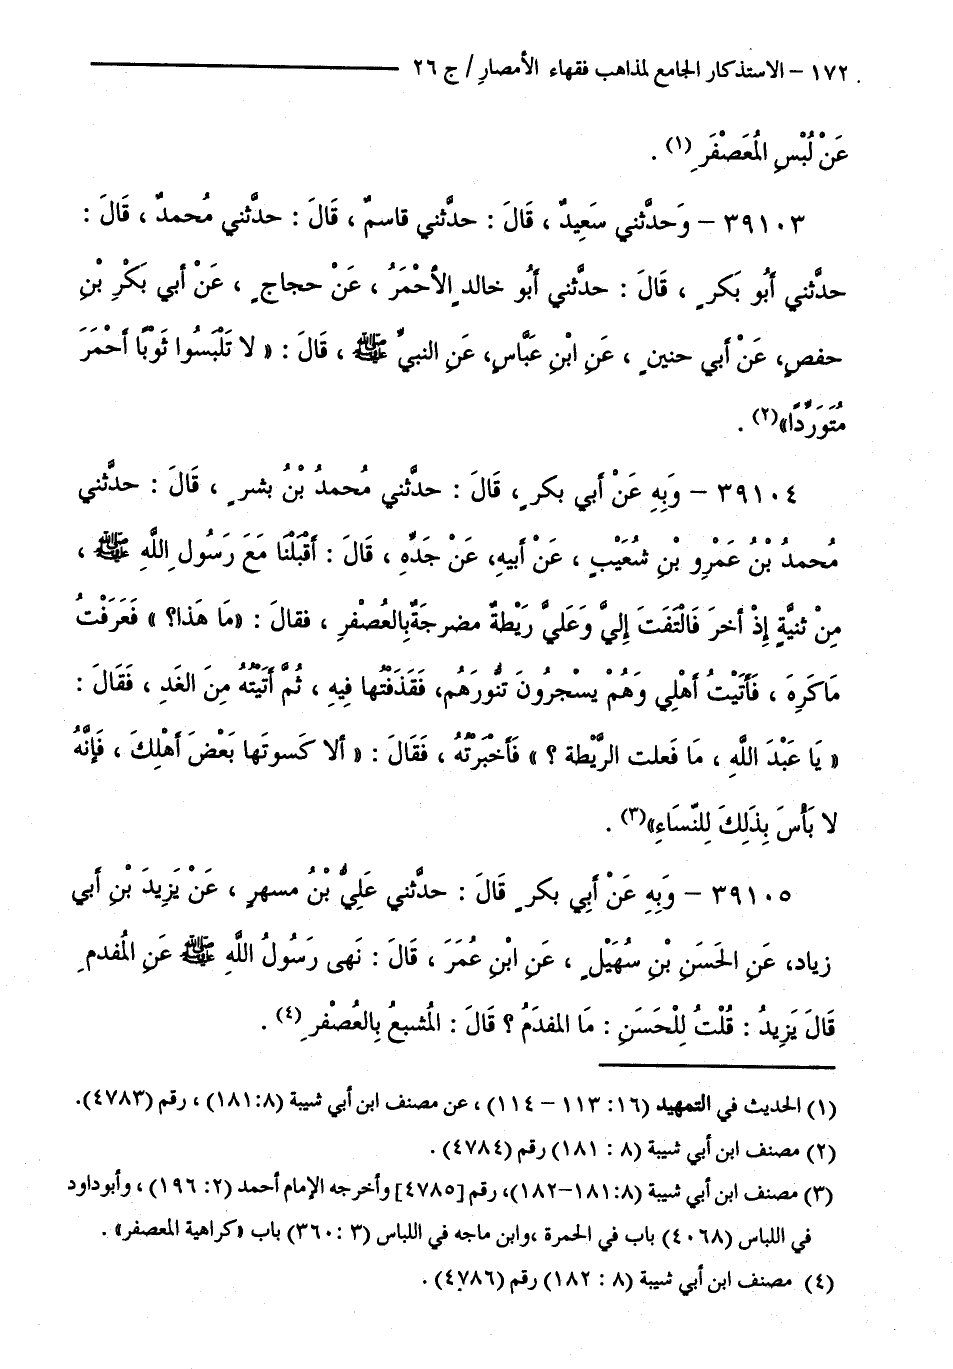 ١٧٢ – الاستذكار الجامع لمذاهب فقهاء الأمصار / ج ٢٦
عَنْ لُبْسِ المُعَصْفَرِ (١) .
٣٩١٠٣ – وَحدَّثني سَعِيدٌ ، قَالَ : حدَّثني قاسمٌ ، قَالَ : حدَّثني مُحمدٌ ، قَالَ :
حدَّثني أَبُو بَكرٍ ، قَالَ : حدَّثني أَبُو خالد ٍالأَحْمَرُ ، عَنْ حجاجٍ ، عَنْ أبي بَكْرِ بْنِ
حفصٍ، عَنْ أبي حنينٍ ، عَنِ ابْنِ عَبَّاسٍ، عَنِ النبيِّ ﷺ ، قَالَ : « لا تَلْبَسُوا ثَوْبًا أحْمَرَ
مُتَوَرِّدًا»(٢) .
٣٩١٠٤ – وَبِهِ عَنْ أبي بكرٍ ، قَالَ : حدَّثني مُحمدُ بْنُ بشرٍ ، قَالَ : حدَّثني
مُحمدُ بْنُ عَمْرِو بْنِ شُعَيْبٍ ، عَنْ أبيهِ، عَنْ جَدِّهِ ، قَالَ : أَقْبَلْنَا مَعَ رَسُولِ اللَّهِ ﷺ ،
مِنْ ثنيَّةٍ إِذْ أخرَ فَالْتَفَتَ إِليَّ وَعَليَّ رَيْطةٌ مضرجَةٌ بِالعُصْفرِ ، فقالَ : «مَا هَذا؟ » فَعَرَفْتُ
مَاكَرِهَ ، فَأَتَيْتُ أهْلِي وَهُمْ يسْجرُونَ تَنُّورَهُم، فَقَذَفْتُها فِيهِ ، ثُمَّ أَتَيْتُهُ مِنَ الغَدِ ، فَقَالَ :
« يَا عَبْدَ اللَّهِ ، مَا فَعلت الرَّيْطة ؟ » فَأَخْبَرْتُهُ ، فَقَالَ : « ألا كَسوتَها بَعْضَ أهْلِكَ ، فَإِنَّهُ
لا بَأْسَ بِذَلِكَ لِلنِّسَاءِ»(٣) .
٣٩١٠٥ – وَبِهِ عَنْ أَبِي بكرٍ قَالَ : حدَّثني عَلِيُّ بْنُ مسهرٍ ، عَنْ يَزِيدَ بْنِ أبي
زياد، عَنِ الحَسَنِ بْنِ سُهَيْلٍ ، عَنِ ابْنِ عُمَرَ ، قَالَ : نَهى رَسُولُ اللَّهِ ﷺ عَنِ المُفدمِ
قَالَ يَزِيدُ : قُلْتُ لِلْحَسَنِ : مَا المفدَمُ ؟ قَالَ : المُشبعُ بِالعُصْفرِ (٤) .
(١) الحديث في التمهيد (١٦: ١١٣ – ١١٤) ، عن مصنف ابن أبي شيبة (٨:١٨١) ، رقم (٤٧٨٣).
(٢) مصنف ابن أبي شيبة (٨ : ١٨١) رقم (٤٧٨٤) .
(٣) مصنف ابن أبي شيبة (٨:١٨١–١٨٢)، رقم [٤٧٨٥] وأخرجه الإمام أحمد (٢: ١٩٦) ، وأبوداود
في اللباس (٤٠٦٨) باب في الحمرة ،وابن ماجه في اللباس (٣ :٣٦٠) باب «كراهية المعصفر» .
(٤) مصنف ابن أبي شيبة (٨ : ١٨٢) رقم (٤٧٨٦) .